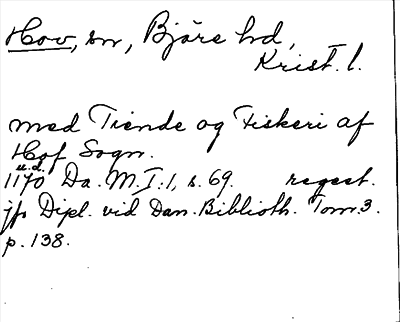 Hov, sn, Bjäre hd,
Krist. l.
med Tiende og Fiskeri af
Hof Sogn.
u.d.
1170 Da. M. I:1, s. 69. regest.
jfr Dipl. vid Dan. Biblioth. Tom 3.
p. 138.